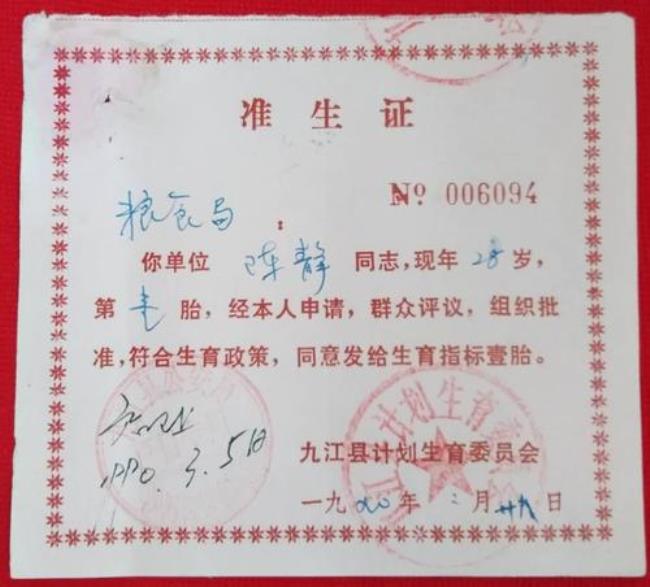 准生证
№ 006094
粮食局：
你单位 陈静 同志，现年 28 岁，
第 壹 胎，经本人申请，群众评议，组织批
准，符合生育政策，同意发给生育指标壹胎。
1990.3.5日
九江县计划生育委员会
一九 年 二 月 廿八 日
计划生育委员会